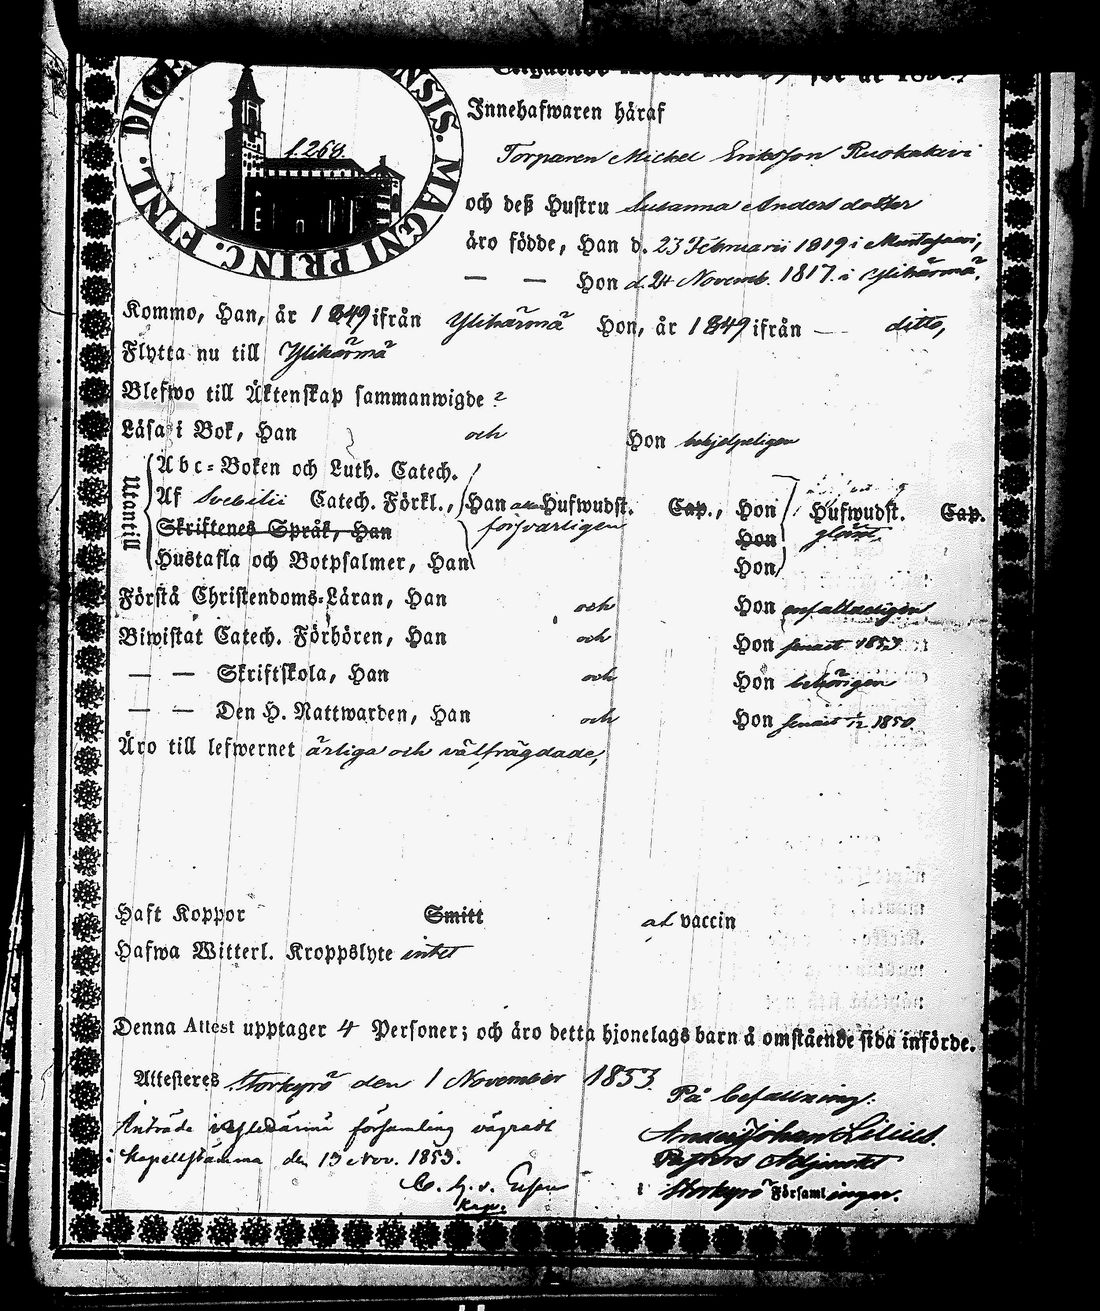 DIOE NSIS. MAGNI PRINC. FINL.
f. 268.
för år 185
Innehafwaren häraf
Torparen Michel Eriksson Ruokakivi
och deß Hustru Susanna Anders dotter
äro födde, Han d. 23 Februarii 1819 i
— — Hon d. 24 Novemb. 1817. i Ylihärmä.
Kommo, Han, år 1849 ifrån Ylihärmä Hon, år 1849 ifrån — ditto,
Flytta nu till Ylihärmä
Blefwo till Äktenskap sammanwigde ?
Läsa i Bok, Han och Hon behjelpeligen
Utantill
Abc-Boken och Luth. Catech.
Af Svebilii Catech. Förkl., Han Hufwudst. Cap., Hon Hufwudst. Cap.
försvarligen
Skriftenes Språk, Han Hon
Hustafla och Botpsalmer, Han Hon
Förstå Christendoms-Läran, Han och Hon enfaldeligen
Biwistat Catech. Förhören, Han och Hon senast 1853.
— — Skriftskola, Han och Hon behörigen
— — Den H. Nattwarden, Han och Hon senast 1850.
Äro till lefwernet ärliga och välfrägdade,
Haft Koppor Smitt af vaccin
Hafwa Witterl. Kroppslyte intet
Denna Attest upptager 4 Personer; och äro detta hjonelags barn å omstående sida införde.
Attesteres Storkyro den 1 November 1853.
På befallning:
Inträde i Ylihärmä församling vägradt
Anders Johan Lilius.
i Kapellstämma den 13 Nov. 1853.
Pastors Adjunct
Kap.
i Storkyro Församlingar.